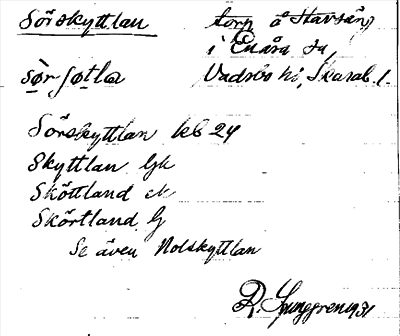 Sörskyttlan torp å Stavsäng
i Enåsa sn,
Vadsbo hd, Skarab. l.
Sörskyttlan kb 24
Skyttlan Gk
Sköttland ek
Skörtland G
Se även Nolskyttlan
R. Ljunggren 1931